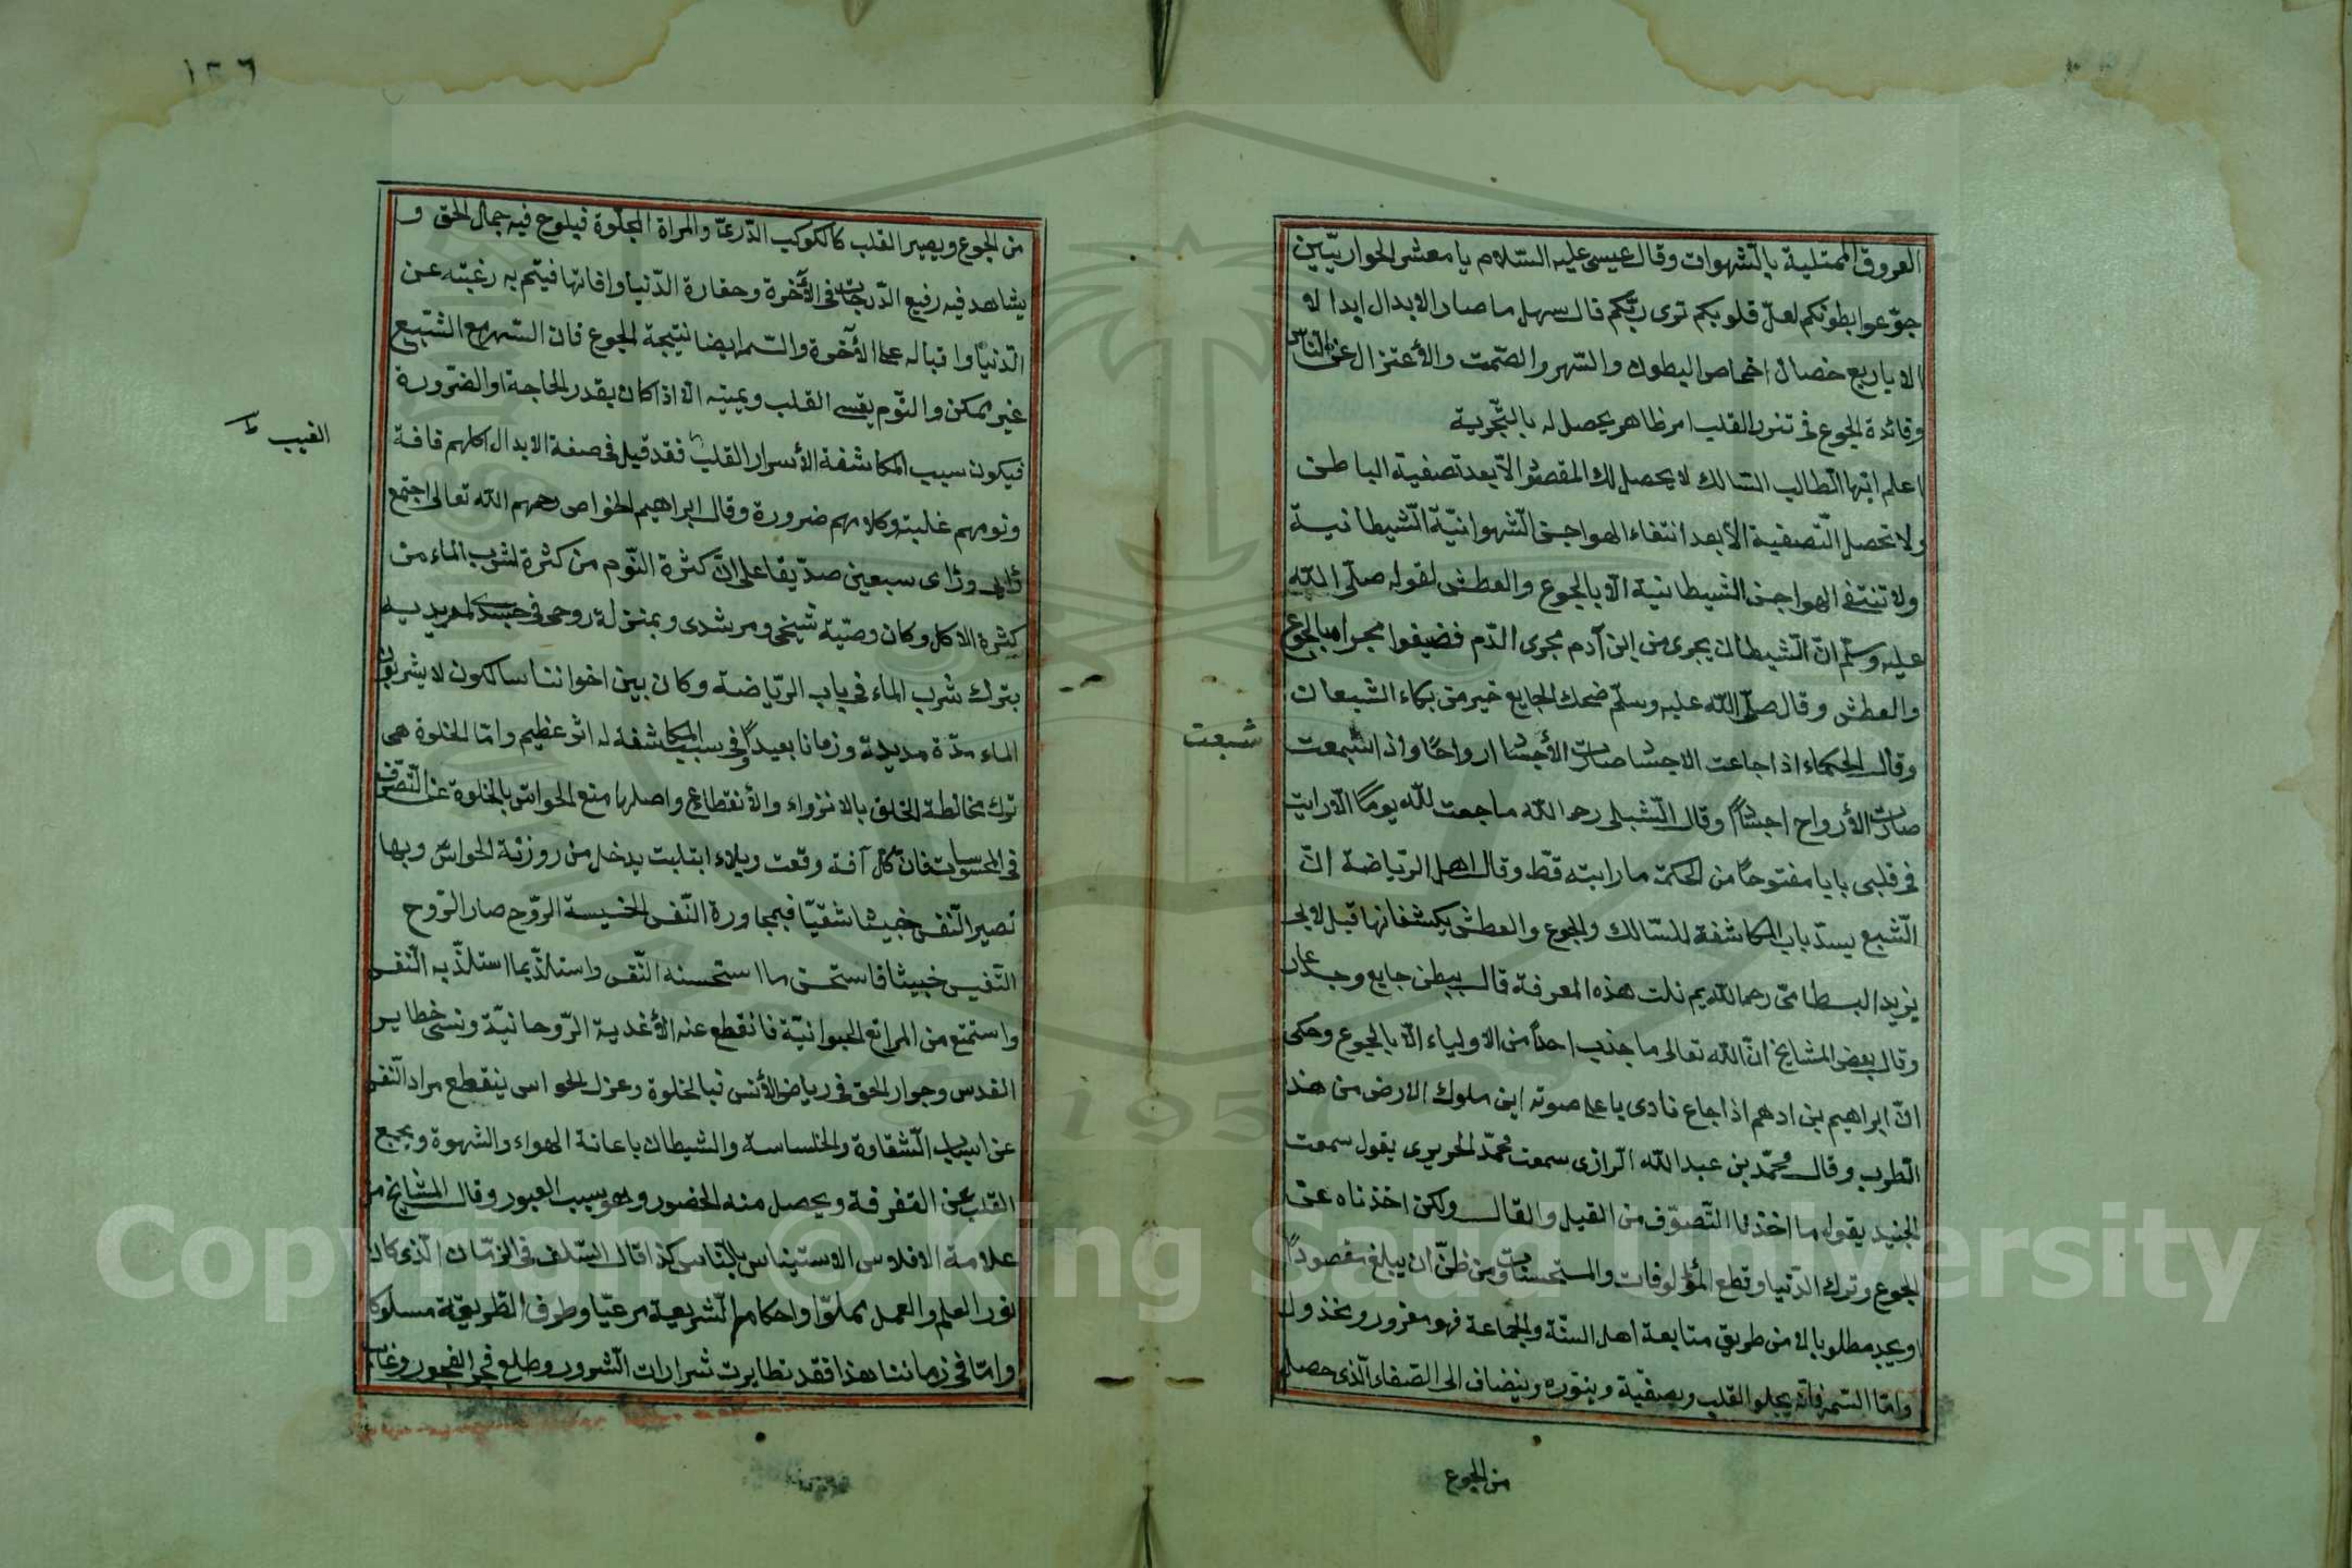 العروق الممتلية بالشهوات وقال عيسى عليه السّلام يا معشر الحواريّين
جوّعوا بطونكم لعلّ قلوبكم ترى ربّكم قال سهل ما صار الابدال ابدالا
الا باربع خصال اخماص البطون والسّهر والصّمت والأعتزال عن النّاس
وفائدة الجوع فى تنور القلب امر ظاهر يحصل له بالتّجربة
اعلم ايّها الطالب السّالك لا يحصل لك المقصود الاّ بعد تصفية الباطن
ولا تحصل التّصفية الأ بعد انتفاء الهواجس الشّهوانيّة الشّيطانية
ولا تنتفى الهواجس الشّيطانية الاّ بالجوع والعطش لقوله صلّى اللّه
عليه وسلّم انّ الشّيطان يجرى من ابن آدم مجرى الدّم فضيقوا مجراه بالجوع
والعطش وقال صلّى اللّه عليه وسلّم ضحك الجايع خير من بكاء الشبعان
وقال الحكماء اذا جاعت الاجساد صارت الأجساد ارواحًا واذا شبعت
شبعت
صارت الأرواح اجسادًا وقال الشّبلى رحمه اللّه ما جعت للّه يومًا الاّ رايت
فى قلبى بابا مفتوحًا من الحكمة ما رايته قطّ وقال اهل الرّياضة انّ
الشّبع يسدّ باب المكاشفة للسّالك والجوع والعطش يكشفانها قيل لابى
يزيد البسطامىّ رحمه اللّه بم نلت هذه المعرفة قال ببطن جايع وجسد عار
وقال بعض المشايخ انّ اللّه تعالى ما جذب احدًا من الاولياء الاّ بالجوع وحكى
انّ ابراهيم بن ادهم اذا جاع نادى باعلى صوته اين ملوك الارض من هذا
الطّرب وقال محمّد بن عبد اللّه الرّازى سمعت محمّد الحريرى يقول سمعت
الجنيد يقول ما اخذنا التّصوّف من القيل والقال ولكن اخذناه عن
الجوع وترك الدّنيا وقطع المألوفات والمستحسنات ومن ظنّ ان يبلغ مقصودًا
او يجد مطلوبا لا من طريق متابعة اهل السنّة والجماعة فهو مغرور ومخذول
وامّا السّهر فانّه يجلو القلب ويصفّية وينوره وينضاف الى الصّفاء الّذى حصل
من الجوع
١٢٦
من الجوع ويصير القلب كالكوكب الدّرىّ والمراة المجلّوة فيلوح فيه جمال الحق و
يشاهد فيه رفيع الدّرجات فى الأخرة وحقارة الدّنيا وافاتها فيتم به رغبته عن
الدّنيا واقباله على الأخرة والسّهر ايضا نتيجة الجوع فان السّهر مع الشّبع
غير ممكن والنّوم يقسى القلب ويميته الاّ اذا كان بقدر الحاجة او الضّرورة
فيكون سبب المكاشفة الأسرار القلب فقد قيل فى صفة الابدال اكلهم فاقة
الغيب
ونومهم غلبة وكلامهم ضرورة وقال ابراهيم الخواص رحمهم اللّه تعالى اجتمع
رأى سبعين صدّيقا على انّ كثرة النّوم من كثرة شرب الماء من
كثرة الاكل وكان وصّية شيخى ومرشدى وبمنزلة روحى فى جسدى لمريديه
بترك شرب الماء فى باب الرّياضة وكان بين اخواننا سالكون لا يشربون
الماء مدّة مديدة وزمانا بعيدًا وفى سبب المكاشفة له اثر عظيم وامّا الخلوة هى
ترك مخالطة الخلق بالانزواء والأنقطاع واصلها منع الحواسّ بالخلوة عن التّصّرف
فى المحسوسات فانّ كلّ آفة وقعت وبلاء ابتليت يدخل من روزنة الحواسّ وبها
تصير النّفس خبيثا شقيّا فبمجاورة النّفس الخسيسة الرّوح صار الرّوح
النّفيس خبيثا فاستحسن ما استحسنه النّفس واستلذّ بما استلذّ به النّفس
واستمتع من المراتع الحيوانيّة فانقطع عنه الأغدية الرّوحانيّة ونسى خطاير
القدس وجوار الحق فى رياض الأنس فبالخلوة وعزل الحواس ينقطع مراد النّفس
عن اسباب الشّقاوة والخلساسة والشيطان باعانة الهواء والشهوة ويجمع
القلب عن التفرقة ويحصل منه الحضور وهو بسبب العبور وقال المشايخ من
علامة الافلاس الاستيناس بالنّاس كذا قال السّلف فى الزمّان الّذى كان
نور العلم والعمل مملوّا واحكام الشّريعة مرعيّا وطرف الطّريقة مسلوكا
وامّا فى زماننا هذا فقد تطايرت شرارات الشرور وطلع فجر الفجور وغاب